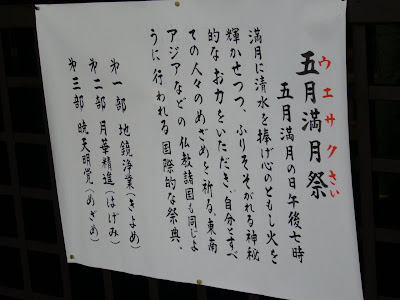 五月満月祭
ウエサクさい
五月満月の日午後七時
満月に清水を捧げ心のともし火を
輝かせつつ、ふりそそがれる神秘
的なお力をいただき、自分とすべ
ての人々のめざめを祈る、東南
アジアなどの仏教諸国も同じよ
うに行われる国際的な祭典。
第一部 地鏡浄業(きよめ)
第二部 月華精進(はげみ)
第三部 暁天明覚(めざめ)